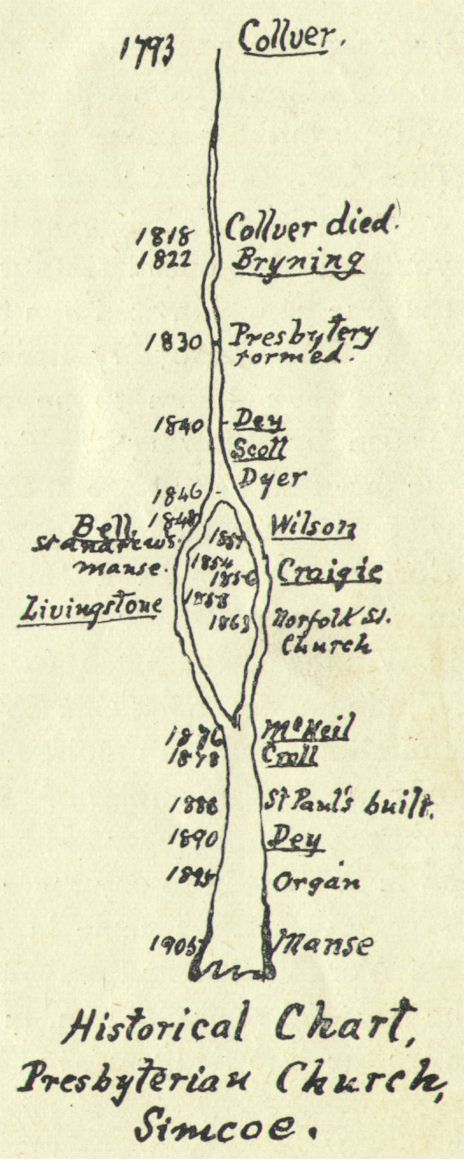 1793 Collver.
1818 Collver died.
1822 Bryning
1830 Presbytery
formed.
1840 Dey
Scott
Dyer
1846
Bell. 1848 Wilson
St andrews 1851
manse. 1854 Craigie
1856
Livingstone 1858 Norfolk St.
1863 Church
1876 McNeil
1878 Croll
1888 St Paul's built.
1890 Dey
1895 Organ
1905 Manse
Historical Chart,
Presbyterian Church,
Simcoe.